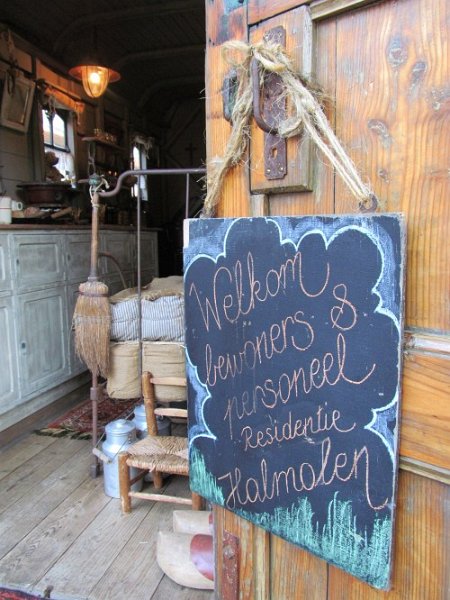 Welkom
bewoners &
personeel
Residentie
Halmolen